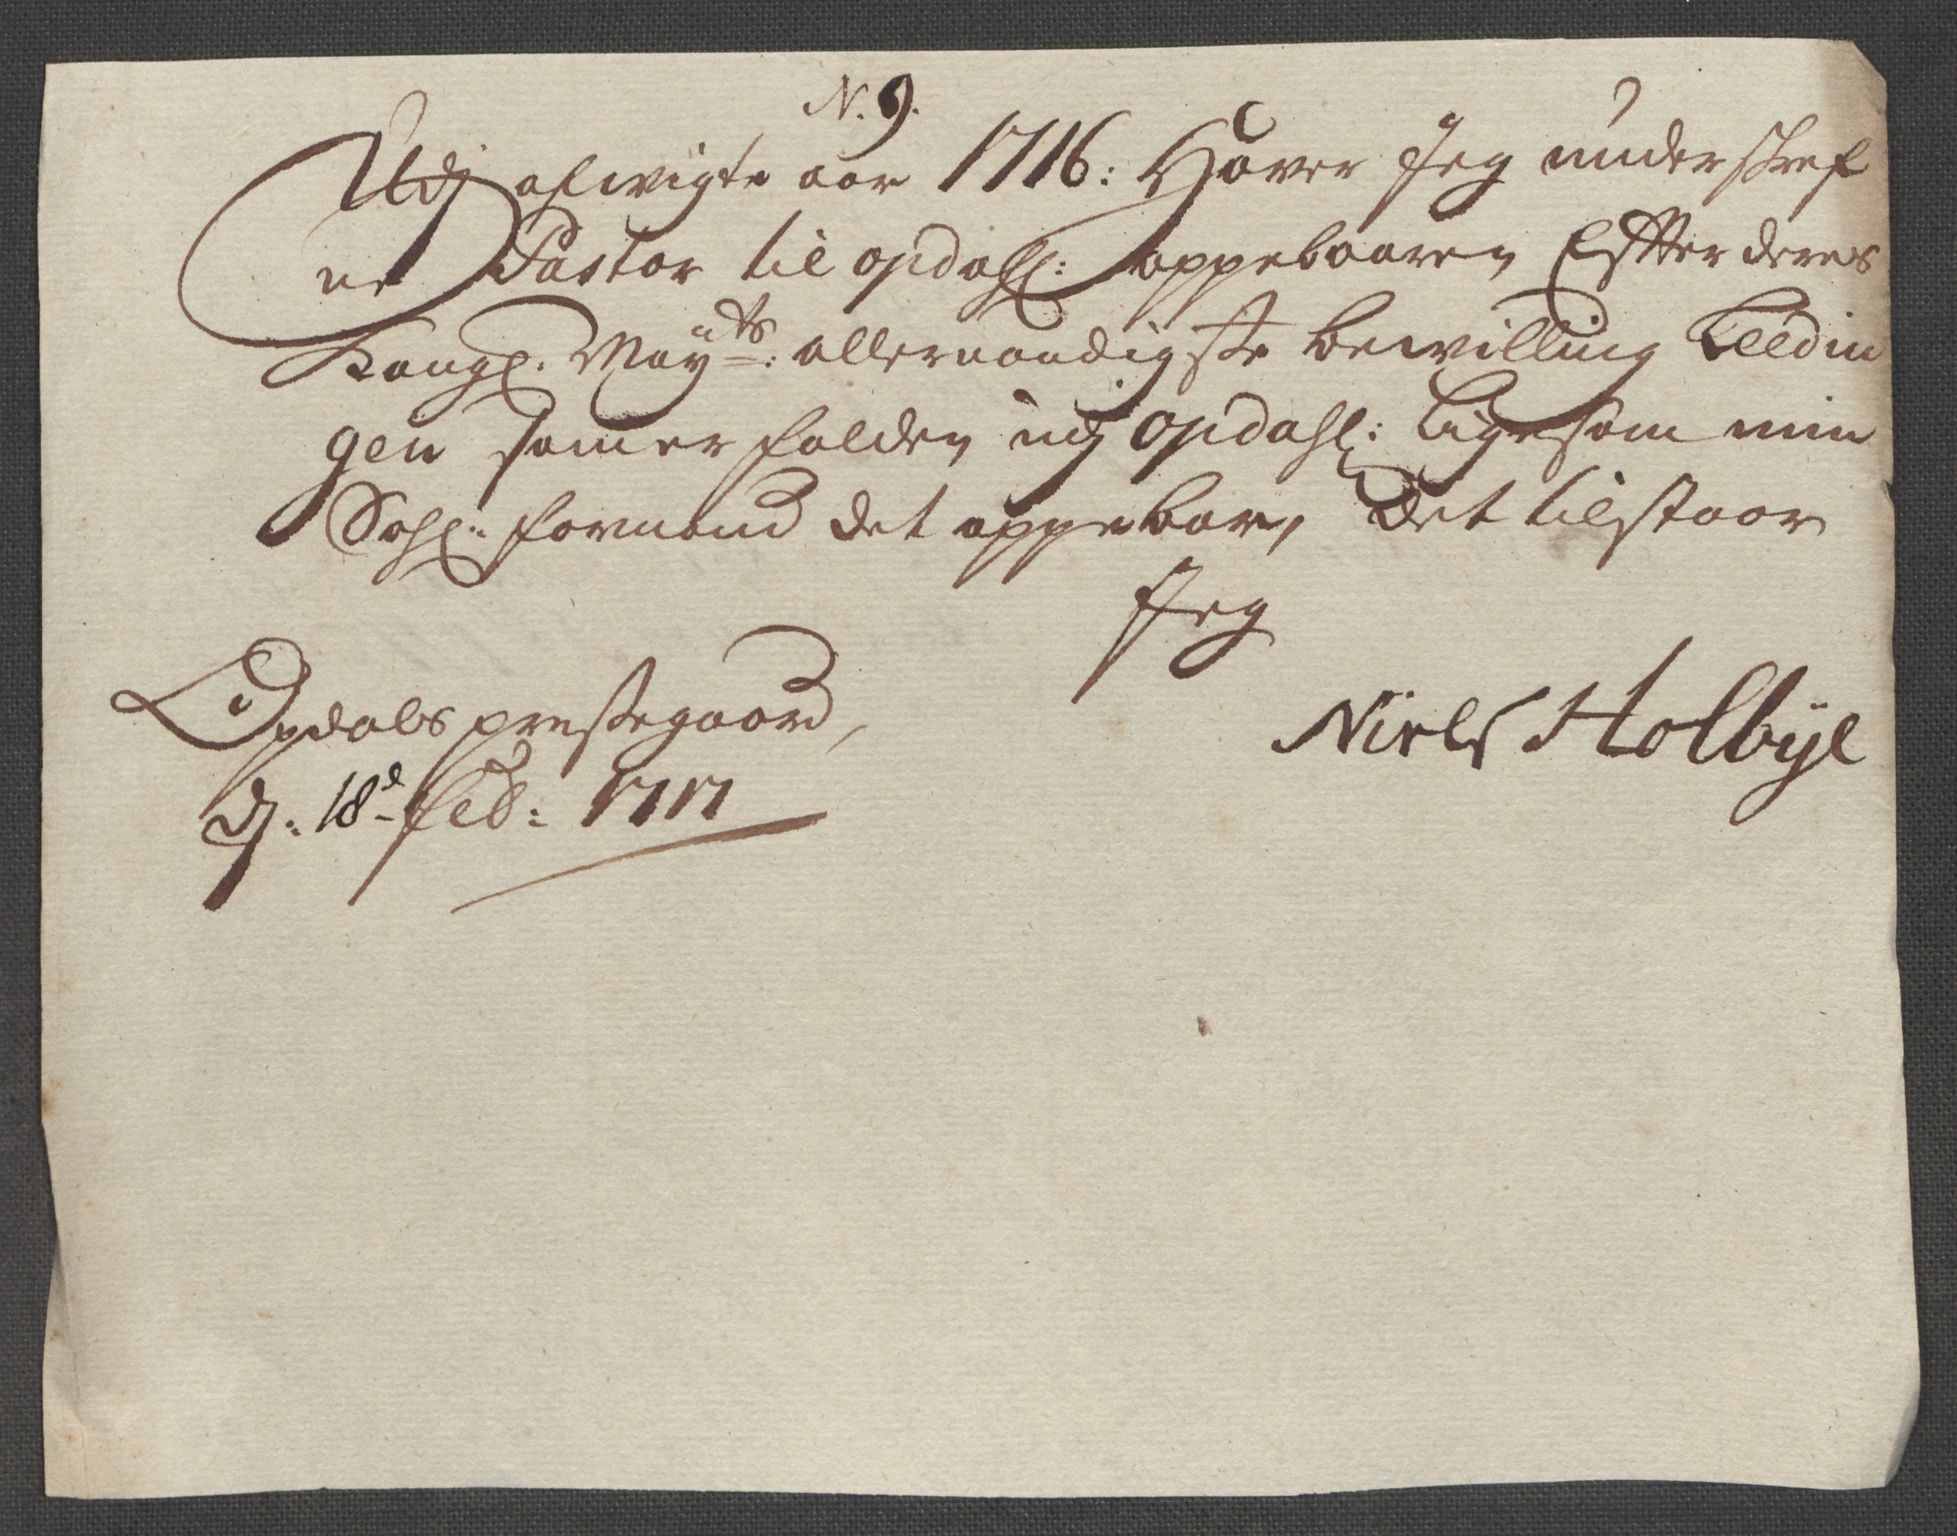 N. 9.
Udj afwigte aar 1716: Haver Jeg underskref
ne Pastor til opdahl: oppebaaren Effter deres
Kongl. Mayts: allernaadigste bewilling Leedin
gen som er falden udj opdahl: ligesom min
Sahl: formand det oppebar, Det tilstaar
Jeg
Opdals prestegaard,
d: 18d feb: 1717
Niels Holbye